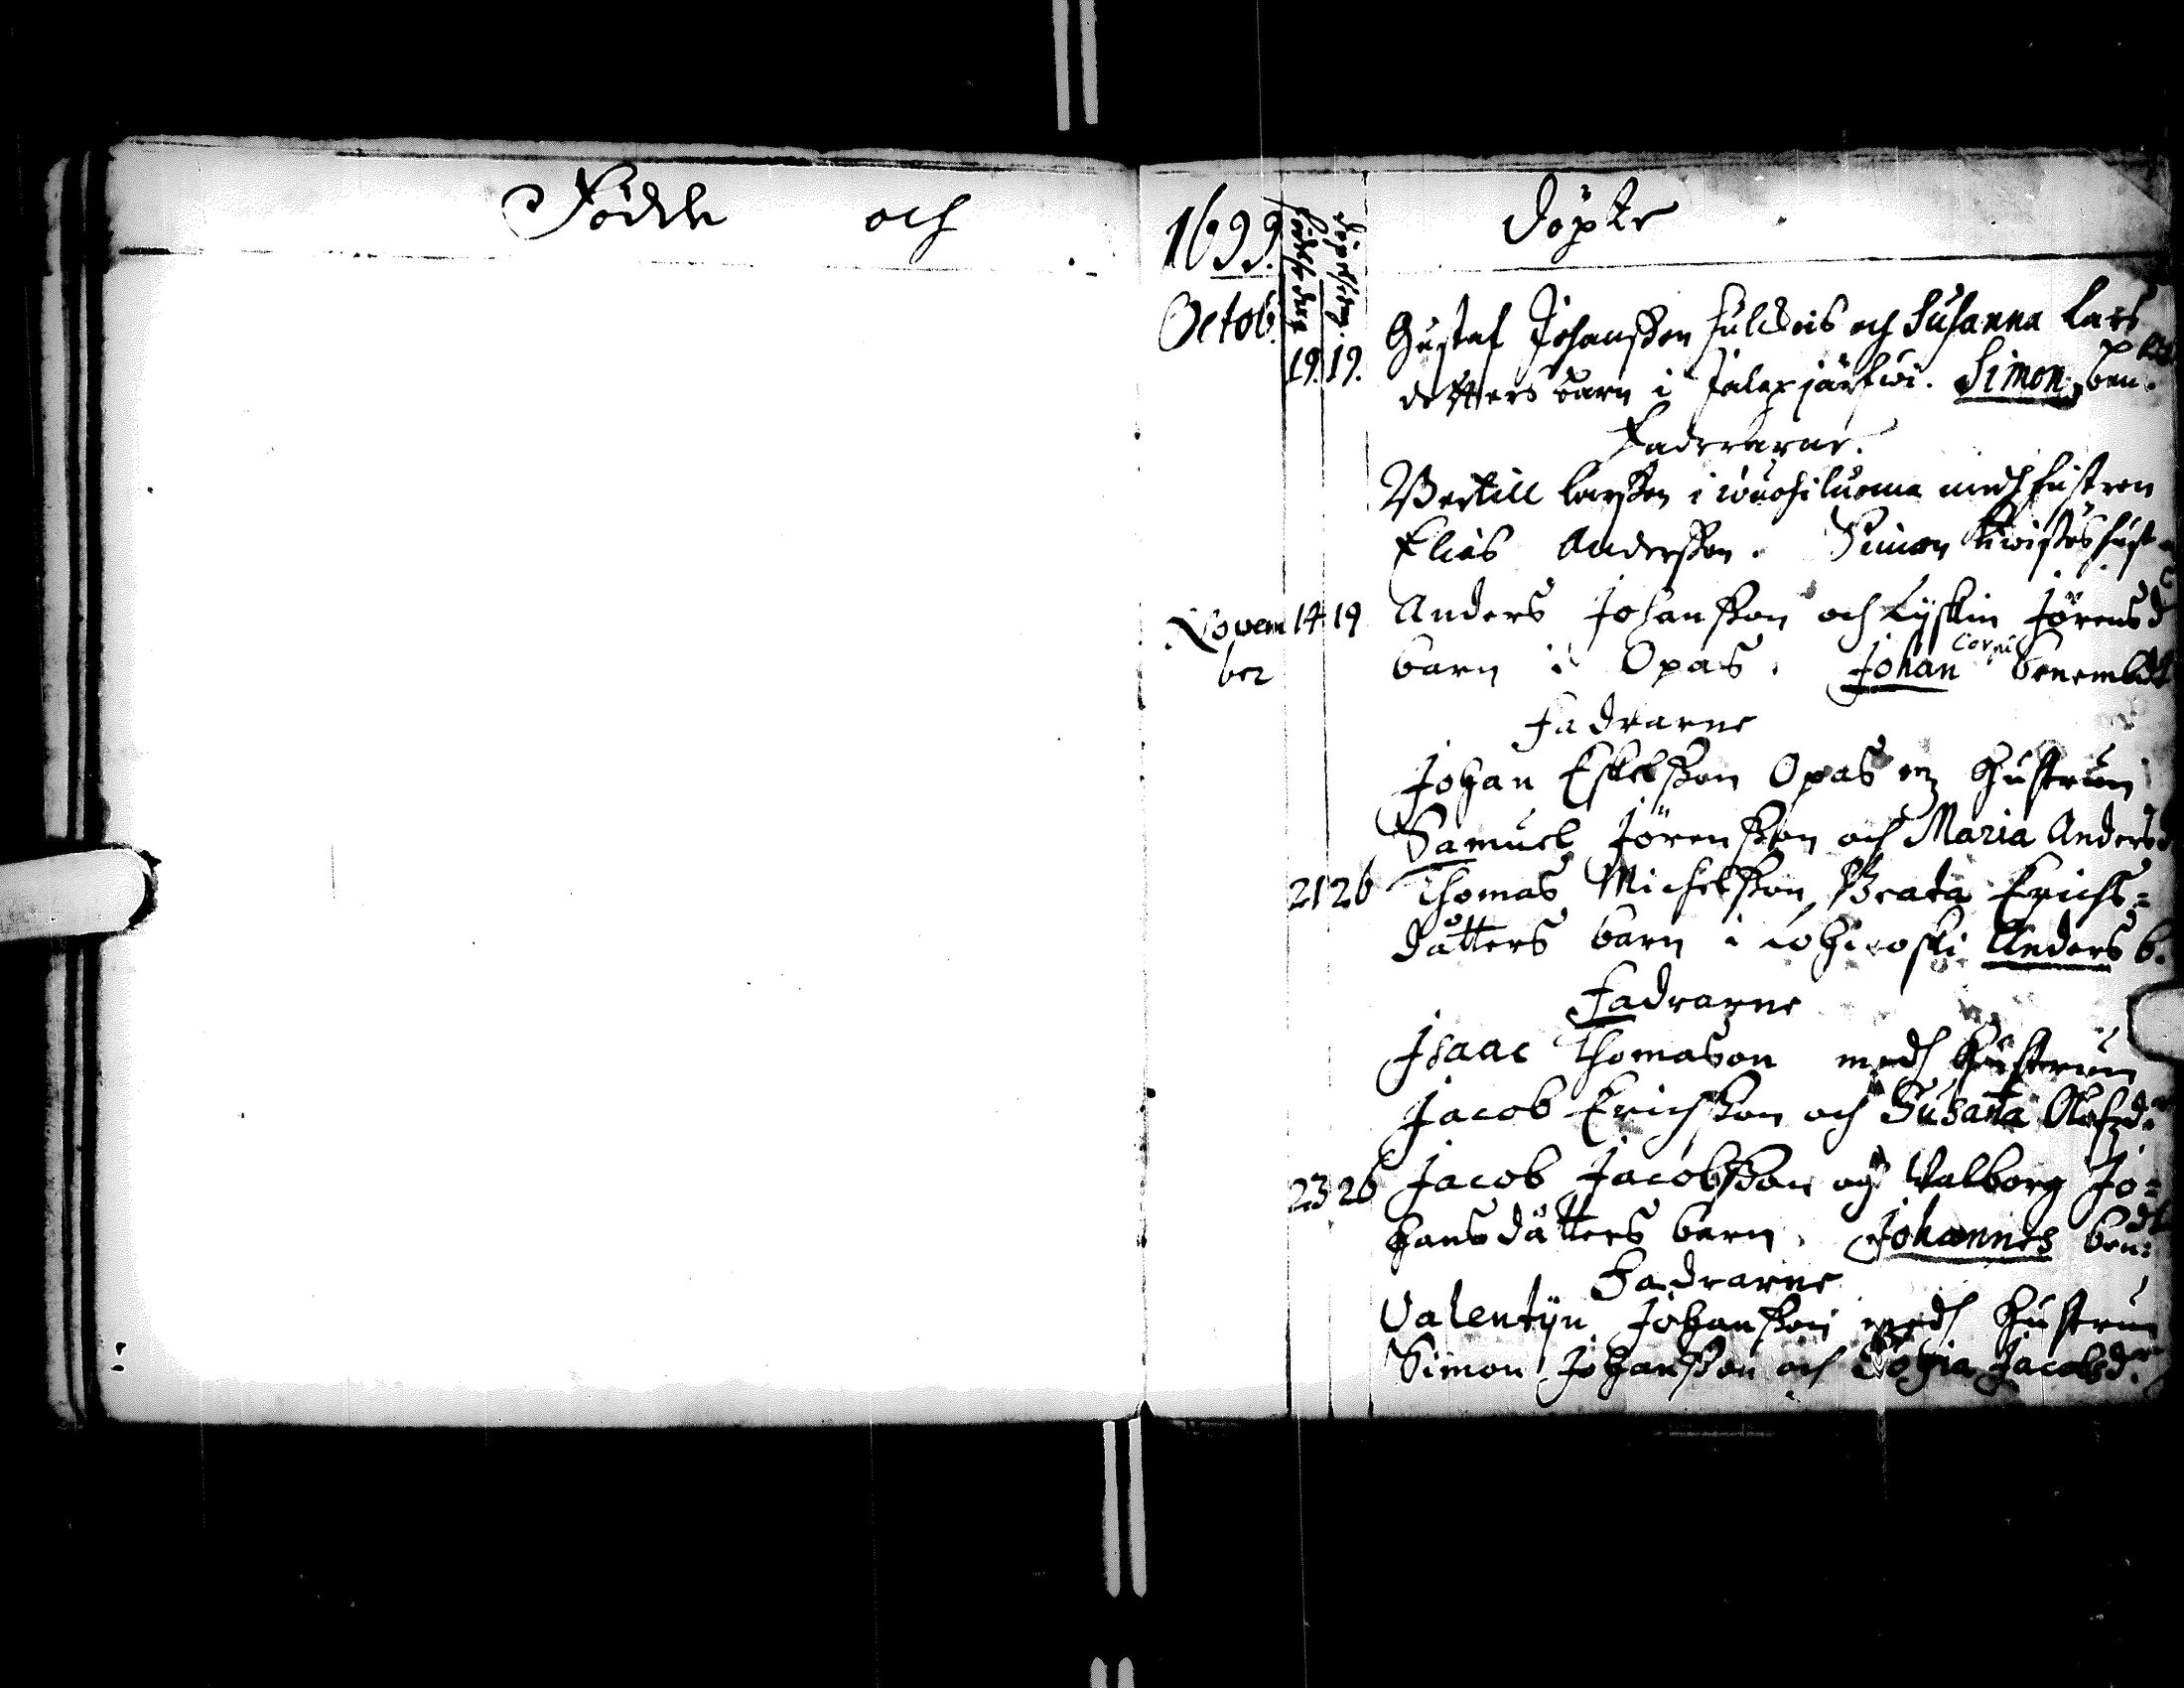 Födde och
1699. Döpte
Octob.
19. 19. Gustaf Johansson och Susanna Lars
detters barn i Jalaxjärfwi. Simon ben.
Faderarne.
Bertill Larsson i medh hustron
Elias Andersson. Simon hust
Novem 14 19 Anders Johansson och Lyskin Jörensd
ber barn i Opas. Johan benembdt
Fadrarne
Johan Eskelsson Opas m hustrun
Samuel Jörensson och Maria Andersd
21 26 Thomas Michelsson, Beata Erichs=
dåtters barn i Anders b.
Fadrarne
Isaac Thomason medh hustrun
Jacob Erichsson och Susana Olofzd.
23 26 Jacob Jacobsson och Walborg Jo=
hansdåtters barn. Johannes ben:
Fadrarne
Valentijn Johansson medh hustrun
Simon Johansson och Sophia Jacobsd.